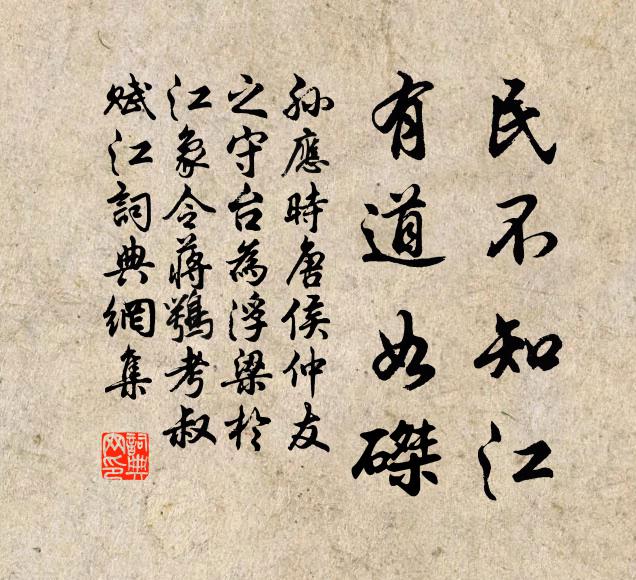 民不知江
有道如磔
孫應時唐侯仲友
之守台為浮梁於
江象令蔣鶚考叔
賦江詞典網集
詞典
网印